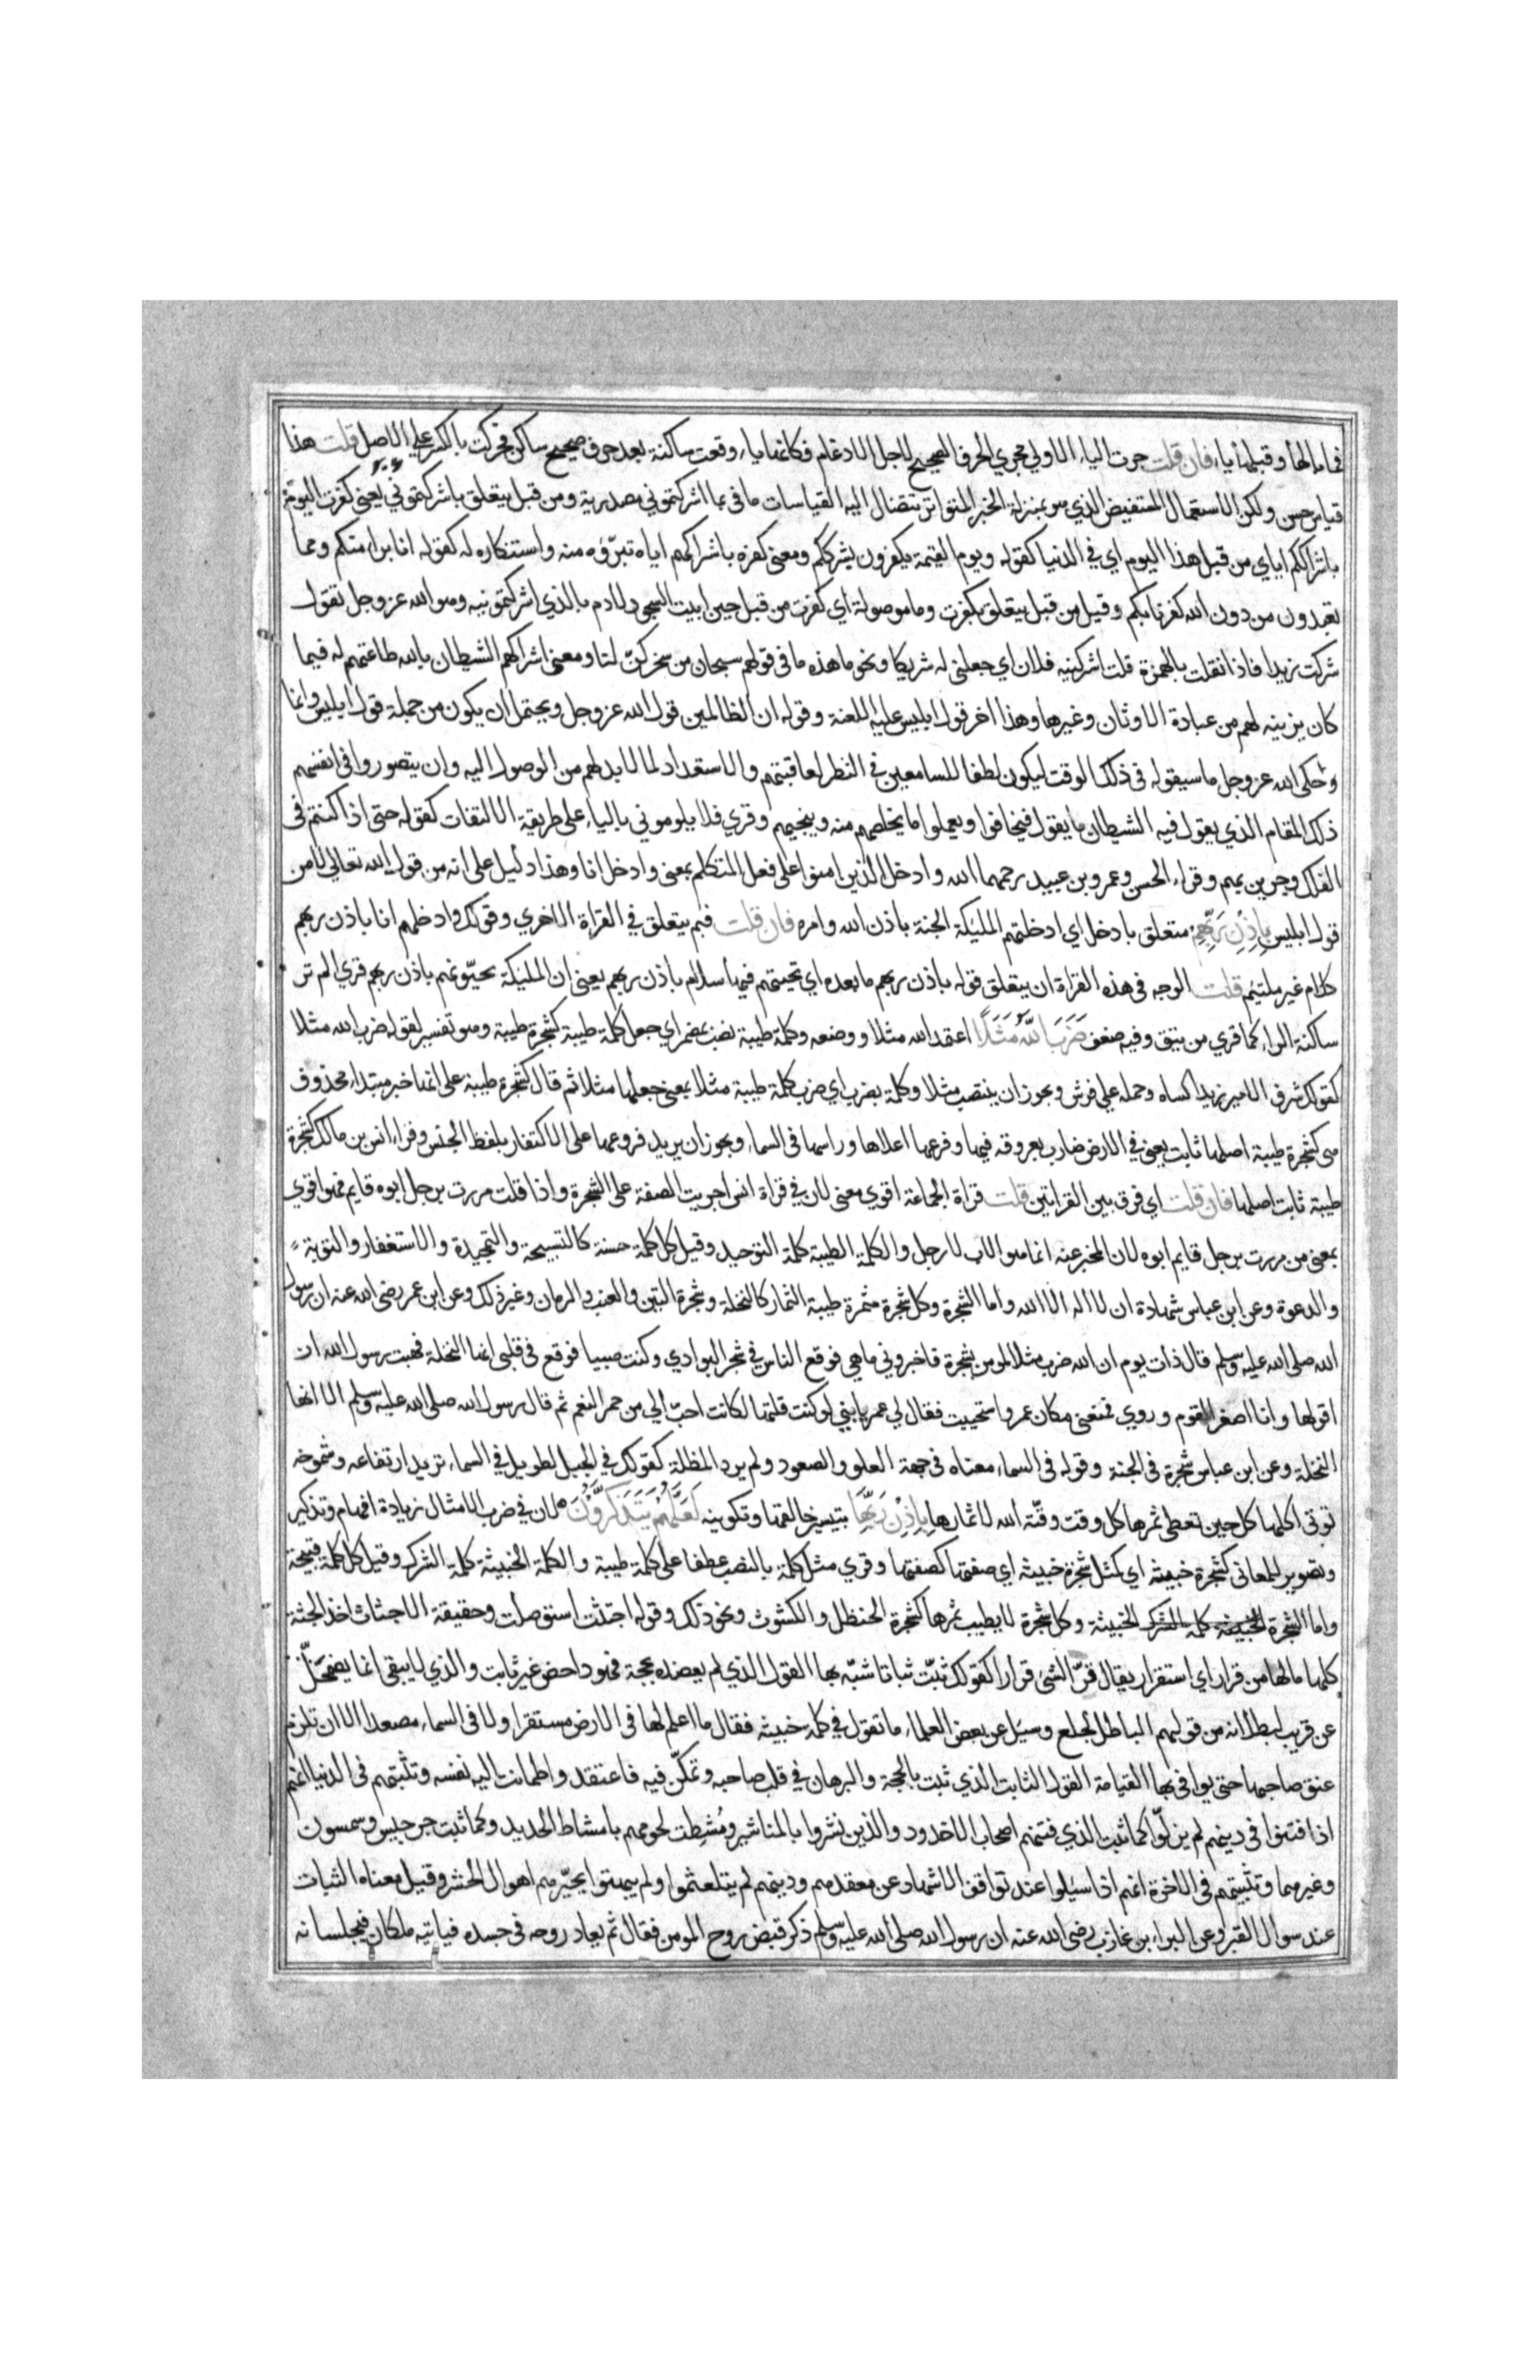 فما بالها وقبلها يا فان قلت جرت اليا الاولي مجري الحرف الصحيح لاجل الادغام فكانها يا وقعت ساكنة بعد حرف صحيح ساكن فحركت بالكسر علي الاصل قلت هذا
قياس حسن ولكن الاستعمال المستفيض الذي هو بمنزلة الخبر المتواتر تتضال اليه القياسات ما في بما اشركتموني مصدرية ومن قبل يتعلق باشركتموني يعني كفرت اليوم
باشراككم اياي من قبل هذا اليوم اي في الدنيا كقوله ويوم القيمة يكفرون بشرككم ومعني كفره باشراكهم اياه تبرؤه منه واستنكاره له كقوله انا براء منكم ومما
تعبدون من دون الله كفرنا بكم وقيل من قبل يتعلق بكفرت وما موصولة اي كفرت من قبل حين ابيت السجود لادم بالذي اشركتمونيه وهو الله عز وجل تقول
شركت زيدا فاذا نقلت بالهمزة قلت اشركنيه فلان اي جعلني له شريكا ونحو ما هذه ما في قولهم سبحان من سخركن لنا ومعني اشراكهم الشيطان بالله طاعتهم له فيما
كان يزينه لهم من عبادة الاوثان وغيرها وهذا اخر قول ابليس عليه اللعنة وقوله ان الظالمين قول الله عز وجل ويحتمل ان يكون من جملة قول ابليس وانما
وحكي الله عز وجل ما سيقوله في ذلك الوقت ليكون لطفا للسامعين في النظر لعاقبتهم والاستعداد لما لا بد لهم من الوصول اليه وان يتصوروا في انفسهم
ذلك المقام الذي يقول فيه الشيطان ما يقول فيخافوا ويعملوا ما يخلصهم منه وينجيهم وقري فلا يلوموني باليا علي طريقة الالتفات كقوله حتي اذا كنتم في
الفلك وجرين بهم وقراء الحسن وعمرو بن عبيد رحمهما الله وادخل الذين امنوا علي فعل المتكلم بمعني وادخل انا وهذا دليل علي انه من قول الله تعالي لا من
قول ابليس باذن ربهم متعلق بادخل اي ادخلتهم المليكة الجنة باذن الله وامره فان قلت فبم يتعلق في القراة الاخري وقولك وادخلهم انا باذن ربهم
كلام غير ملتيم قلت الوجه في هذه القراة ان يتعلق قوله باذن ربهم ما بعده اي تحيتهم فيها سلام باذن ربهم يعني ان المليكة يحيونهم باذن ربهم قري الم تر
ساكنة الراء كما قري من يتق وفيه ضعف ضرب الله مثلا اعتمد الله مثلا ووضعه وكلمة طيبة نصب بمضمر اي جعل كلمة طيبة كشجرة طيبة وهو تفسير لقوله ضرب الله مثلا
كقولك شرف الامير زيدا كساه وحمله علي فرش ويجوز ان ينتصب مثلا وكلمة بضرب اي ضرب كلمة طيبة مثلا بمعني جعلها مثلا ثم قال كشجرة طيبة علي انها خبر مبتداء محذوف
هي كشجرة طيبة اصلها ثابت يعني في الارض ضارب بعروقه فيها وفرعها اعلاها وراسها في السماء ويجوز ان يريد فروعها علي الاكتفاء بلفظ الجنس وقراء انس بن مالك كشجرة
طيبة ثابت اصلها فان قلت اي فرق بين القراتين قلت قراة الجماعة اقوي معني لان في قراة انس اجريت الصفة علي الشجرة واذا قلت مررت برجل ابوه قايم فهو اقوي
بمعني من مررت برجل قايم ابوه لان المخبر عنه انما هو الاب لا رجل والكلمة الطيبة كلمة التوحيد وقيل كل كلمة حسنة كالتسبيحة والتحميدة والاستغفار والتوبة
والدعوة وعن ابن عباس شهادة ان لا اله الا الله واما الشجرة وكل شجرة مثمرة طيبة الثمار كالنخلة وشجرة التين والعنب والرمان وغير ذلك وعن ابن عمر رضي الله عنه ان رسول
الله صلي الله عليه وسلم قال ذات يوم ان الله ضرب مثلا المومن بشجرة فاخبروني ما هي فوقع الناس في شجر البوادي وكنت صبيا فوقع في قلبي انها النخلة فهبت رسول الله ان
اقولها وانا اصغر القوم وروي فمنعني مكان عمر واستحييت فقال لي عمر يا بني لو كنت قلتها لكانت احب الي من حمر النعم ثم قال رسول الله صلي الله عليه وسلم الا انها
النخلة وعن ابن عباس شجرة في الجنة وقوله في السماء معناه في جهة العلو والصعود ولم يرد المظلة كقولك في الجبل الطويل في السماء تريد ارتفاعه وشموخه
توتي اكلها كل حين تعطي ثمرها كل وقت وقته الله لاثمارها باذن ربها بتيسير خالقها وتكوينه لعلهم يتذكرون لان في ضرب الامثال زيادة افهام وتذكير
وتصوير للمعاني كشجرة خبيثة اي كمثل شجرة خبيثة اي صفتها كصفتها وقري مثل كلمة بالنصب عطفا علي كلمة طيبة والكلمة الخبيثة كلمة الشرك وقيل كل كلمة قبيحة
واما الشجرة الخبيثة كلمة الشرك الخبيثة وكل شجرة لا يطيب ثمرها كشجرة الحنظل والكشوث ونحو ذلك وقوله اجتثت استوصلت وحقيقة الاجتثاث اخذ الجثة
كلها ما لها من قرار اي استقرار يقال قر الشئ قرارا كقولك ثبت ثباتا شبه بها القول الذي لم يعضده بحجة فهو داحض غير ثابت والذي لا يبقي انما يضمحل
عن قريب لبطلانه من قولهم الباطل لجلج وسيل عن بعض العلماء ما تقول في كلمة خبيثة فقال ما اعلم لها في الارض مستقرا ولا في السماء مصعدا الا ان تلزم
عنق صاحبها حتي يوافي بها القيامة القول الثابت الذي ثبت بالحجة والبرهان في قلب صاحبه وتمكن فيه فاعتقد واطمانت اليه نفسه وتثبيتهم في الدنيا انهم
اذا فتنوا في دينهم لم يزلوا كما ثبت الذي فتنهم اصحاب الاخدود والذين نشروا بالمناشير ومشطت لحومهم بامشاط الحديد وكما ثبت جرجيس وسمسون
وغيرهما وتثبيتهم في الاخرة انهم اذا سيلوا عند تواقف الاشهاد عن معتقدهم ودينهم لم يتلعثموا ولم يبهتوا يحيرهم اهوال الحشر وقيل معناه الثبات
عند سوال القبر وعن البراء بن عازب رضي الله عنه ان رسول الله صلي الله عليه وسلم ذكر قبض روح المومن فقال ثم يعاد روحه في جسده فياتيه ملكان فيجلسانه